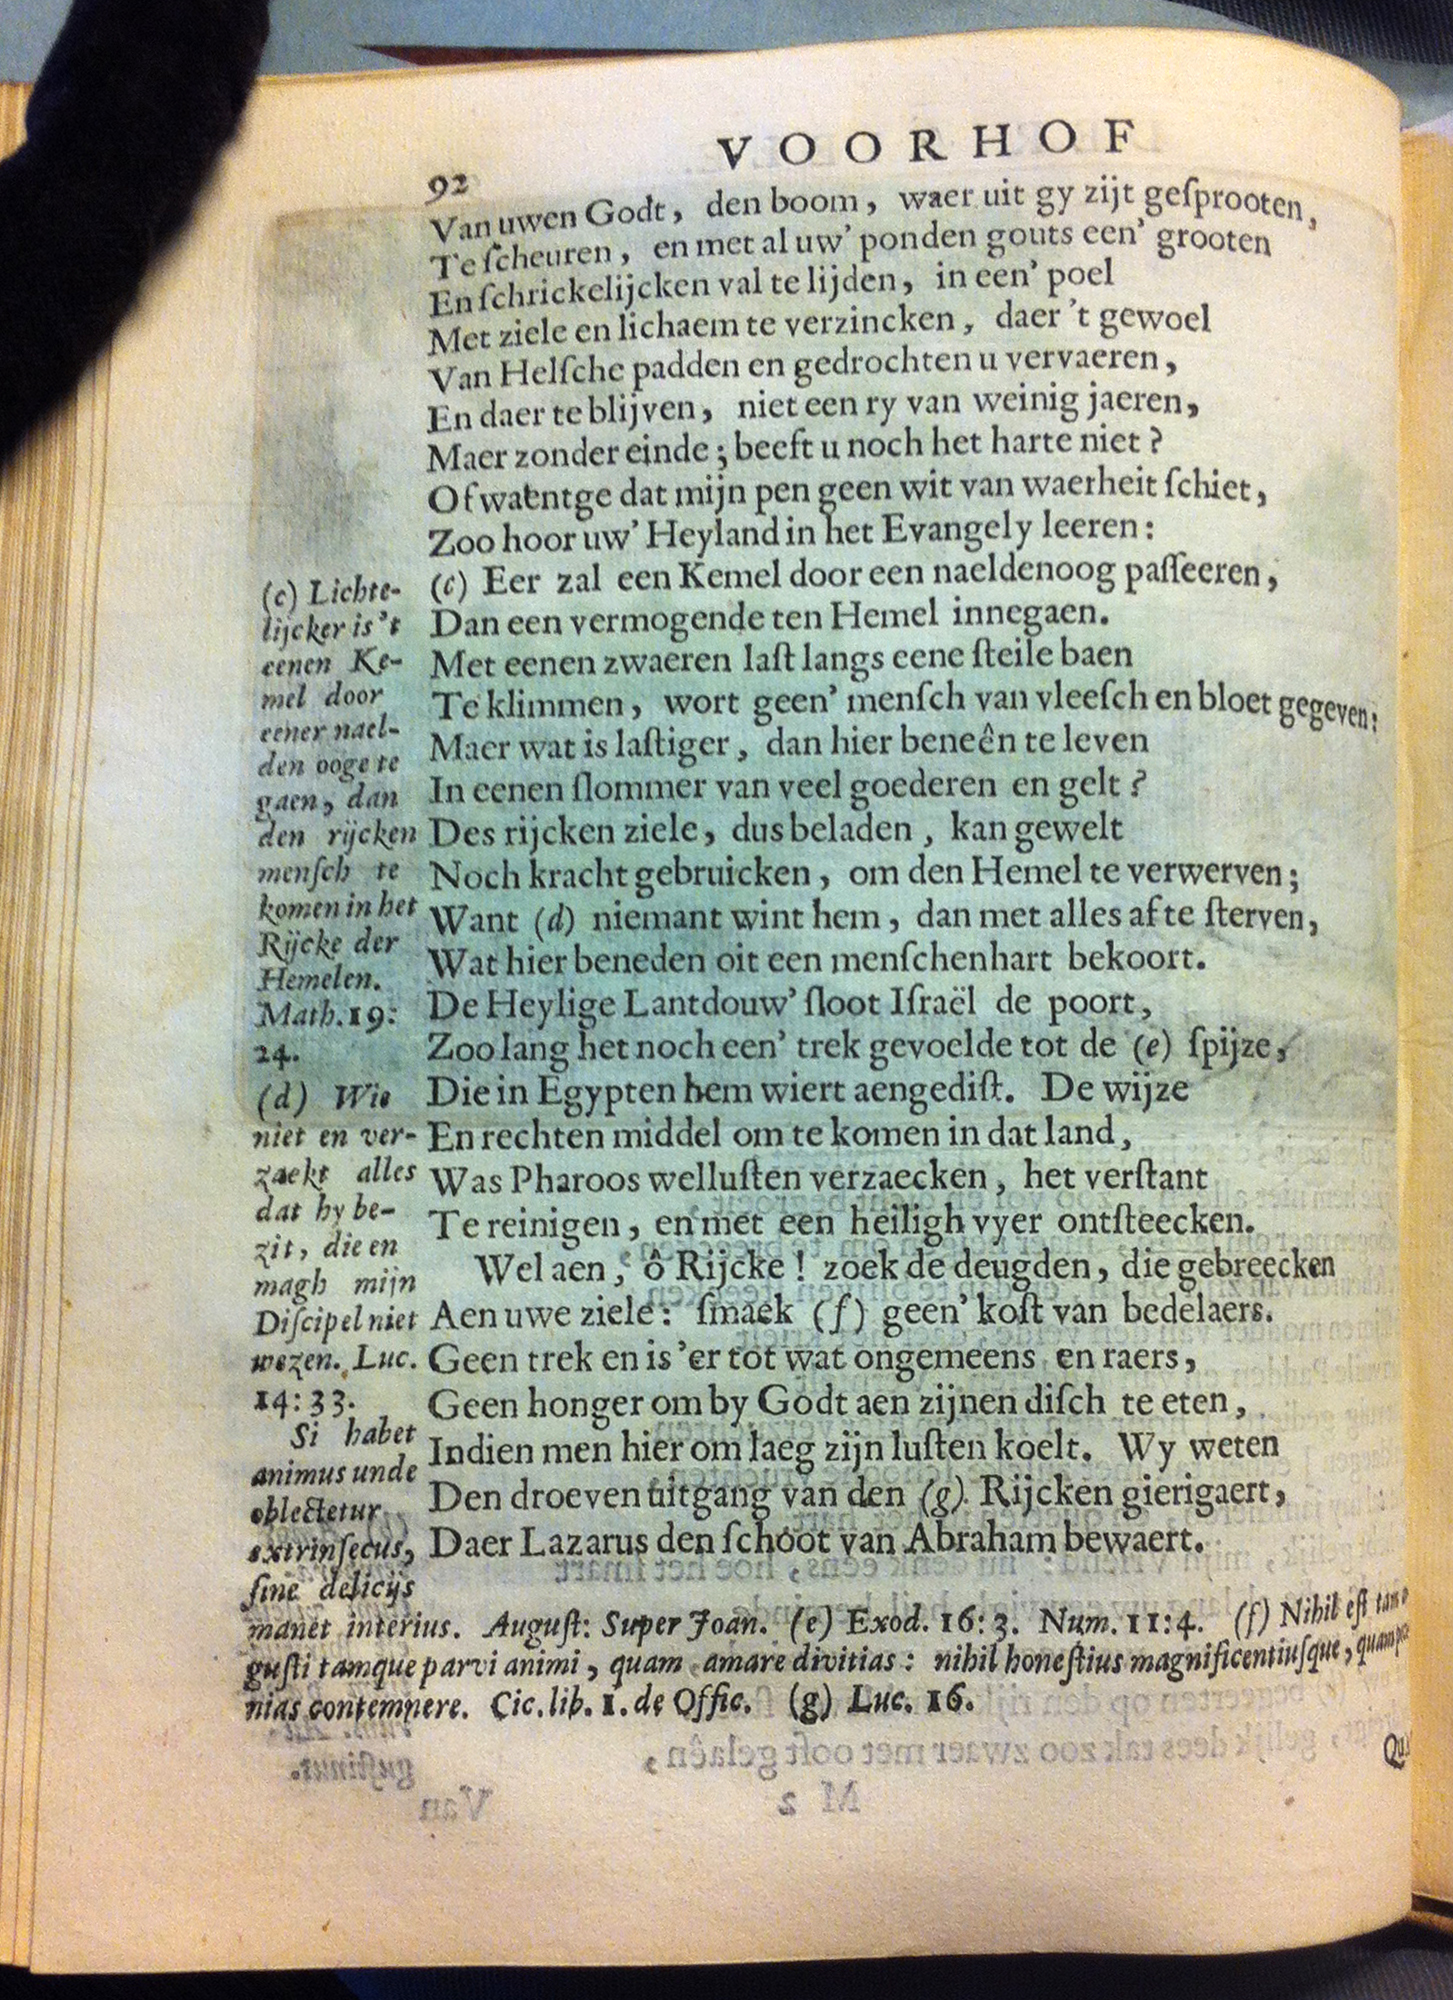 VOORHOF
92
Van uwen Godt, den boom, waer uit gy zijt geſprooten,
Te ſcheuren, en met al uw' ponden gouts een' grooten
En ſchrickelijcken val te lijden, in een' poel
Met ziele en lichaem te verzincken, daer 't gewoel
Van Helſche padden en gedrochten u vervaeren,
En daer te blijven, niet een ry van weinig jaeren,
Maer zonder einde; beeft u noch het harte niet?
Of waentge dat mijn pen geen wit van waerheit ſchiet,
Zoo hoor uw' Heyland in het Evangely leeren:
(c) Eer zal een Kemel door een naeldenoog paſſeeren,
Dan een vermogende ten Hemel innegaen.
Met eenen zwaeren laſt langs eene ſteile baen
Te klimmen, wort geen' menſch van vleeſch en bloet gegeven:
Maer wat is laſtiger, dan hier beneên te leven
In eenen ſlommer van veel goederen en gelt?
Des rijcken ziele, dus beladen, kan gewelt
Noch kracht gebruicken, om den Hemel te verwerven;
Want (d) niemant wint hem, dan met alles af te ſterven,
Wat hier beneden oit een menſchenhart bekoort.
De Heylige Lantdouw' ſloot Iſraël de poort,
Zoo lang het noch een' trek gevoelde tot de (e) ſpijze,
Die in Egypten hem wiert aengediſt. De wijze
En rechten middel om te komen in dat land,
Was Pharoos welluſten verzaecken, het verſtant
Te reinigen, en met een heiligh vyer ontſteecken.
Wel aen, ô Rijcke! zoek de deugden, die gebreecken
Aen uwe ziele: ſmaek (f) geen' koſt van bedelaers.
Geen trek en is 'er tot wat ongemeens en raers,
Geen honger om by Godt aen zijnen diſch te eten,
Indien men hier om laeg zijn luſten koelt. Wy weten
Den droeven uitgang van den (g) Rijcken gierigaert,
Daer Lazarus den ſchoot van Abraham bewaert.
(c) Lichte-
lijcker is 't
eenen Ke-
mel door
eener nael-
den ooge te
gaen, dan
den rijcken
menſch te
komen in het
Rijcke der
Hemelen.
Math. 19:
24.
(d) Wie
niet en ver-
zaekt alles
dat hy be-
zit, die en
magh mijn
Diſcipel niet
wezen. Luc.
14: 33.
Si habet
animus unde
oblectetur
extrinſecus,
ſine delicijs
manet interius. Auguſt: Super Joan. (e) Exod. 16: 3. Num. 11: 4. (f) Nihil eſt tam
guſti tamque parvi animi, quam amare divitias: nihil honeſtius magnificentiuſque, quam
nias contemnere. Cic. lib. 1. de Offic. (g) Luc. 16.